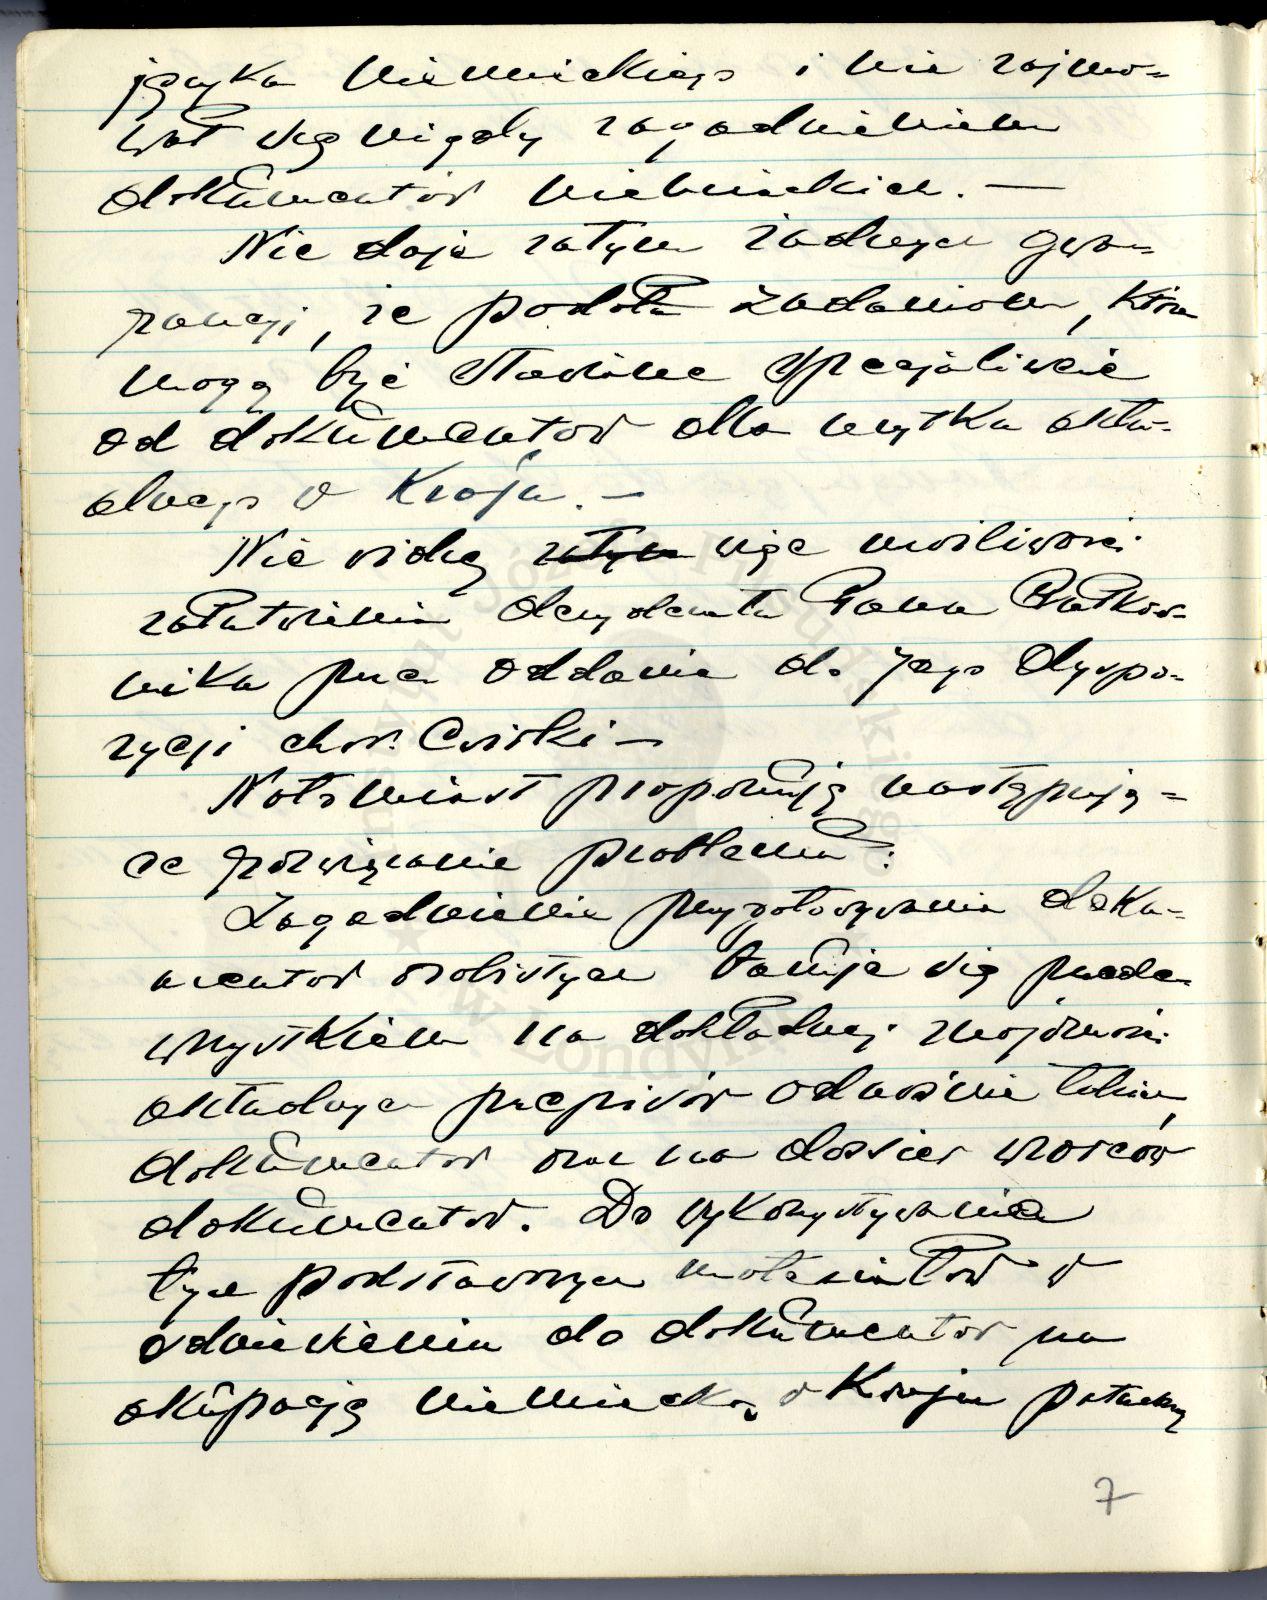 języka niemieckiego i nie zajmo-
wał się nigdy zagadnieniem
dokumentów niemieckich. —
Nie daje zatym żadnych gwa-
rancji, że podoła zadaniom, które
mogą być stawiane specjaliście
od dokumentów dla użytku aktu-
alnego w Kraju. —
Nie widzę zatym więc możliwości
załatwienia dezyderatu Pana Pułkow-
nika przez oddanie do Jego dyspo-
zycji chor.
Natomiast proponuję następują-
ce rozwiązanie problemu:
Zagadnienie przygotowywania doku-
mentów osobistych bazuje się przede
wszystkiem na dokładnej znajomości
aktualnych przepisów odnośnie takich
dokumentów oraz na dossier wzorców
dokumentów. Do wykorzystywania
tych podstawowych materiałów w
odniesieniu do dokumentów na
okupację niemiecką w Kraju potrzebny
7
Józefa Piłsudskiego
w Londynie